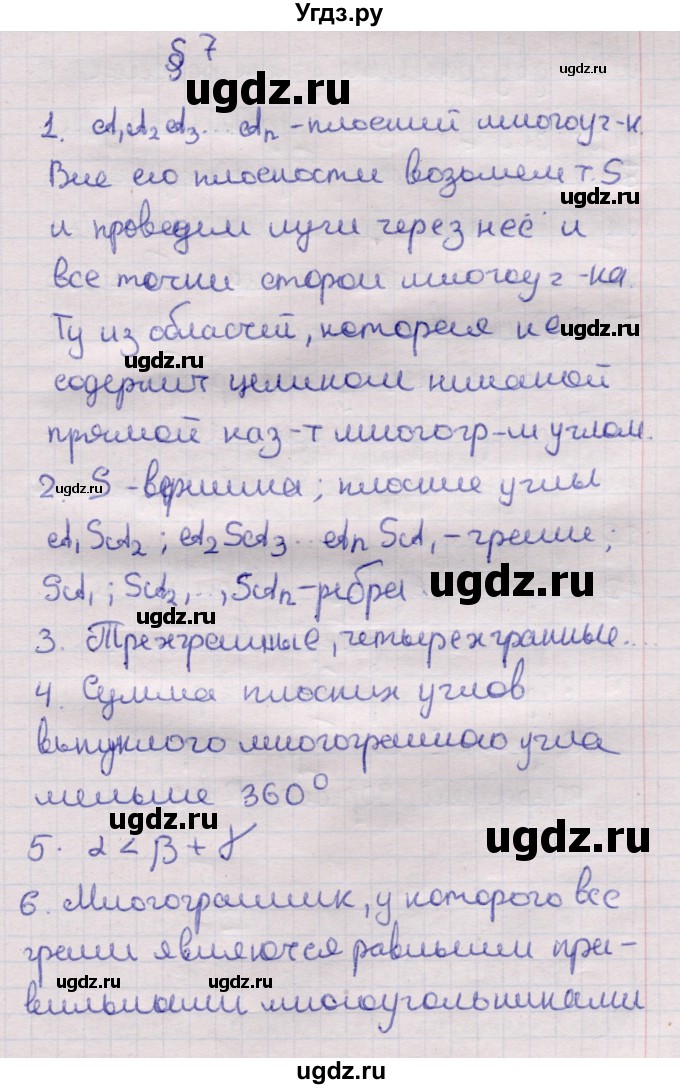 Угдз.ру
§ 7
ugdz.ru
ugdz.ru
1. A₁A₂A₃...Aₙ - плоский многоуг-к.
Вне его плоскости возьмем т. S
ugdz.ru
и проведем лучи через неё и
все точки сторон многоуг-ка.
Ту из областей, которая не
ugdz.ru
ugdz.ru
содержит целиком никакой
прямой наз-т многогр-м углом.
ugdz.ru
2. S - вершина; плоские углы
A₁SA₂; A₂SA₃...AₙSA₁ - грани;
SA₁; SA₂,..., SAₙ - рёбра
ugdz.ru
ugdz.ru
3. Трехгранные, четырехгранные...
4. Сумма плоских углов
выпуклого многогранного угла
меньше 360°
ugdz.ru
ugdz.ru
5. α < β + γ
6. Многогранник, у которого все
грани являются равными пра-
ugdz.ru
ugdz.ru
вильными многоугольниками
ugdz.ru